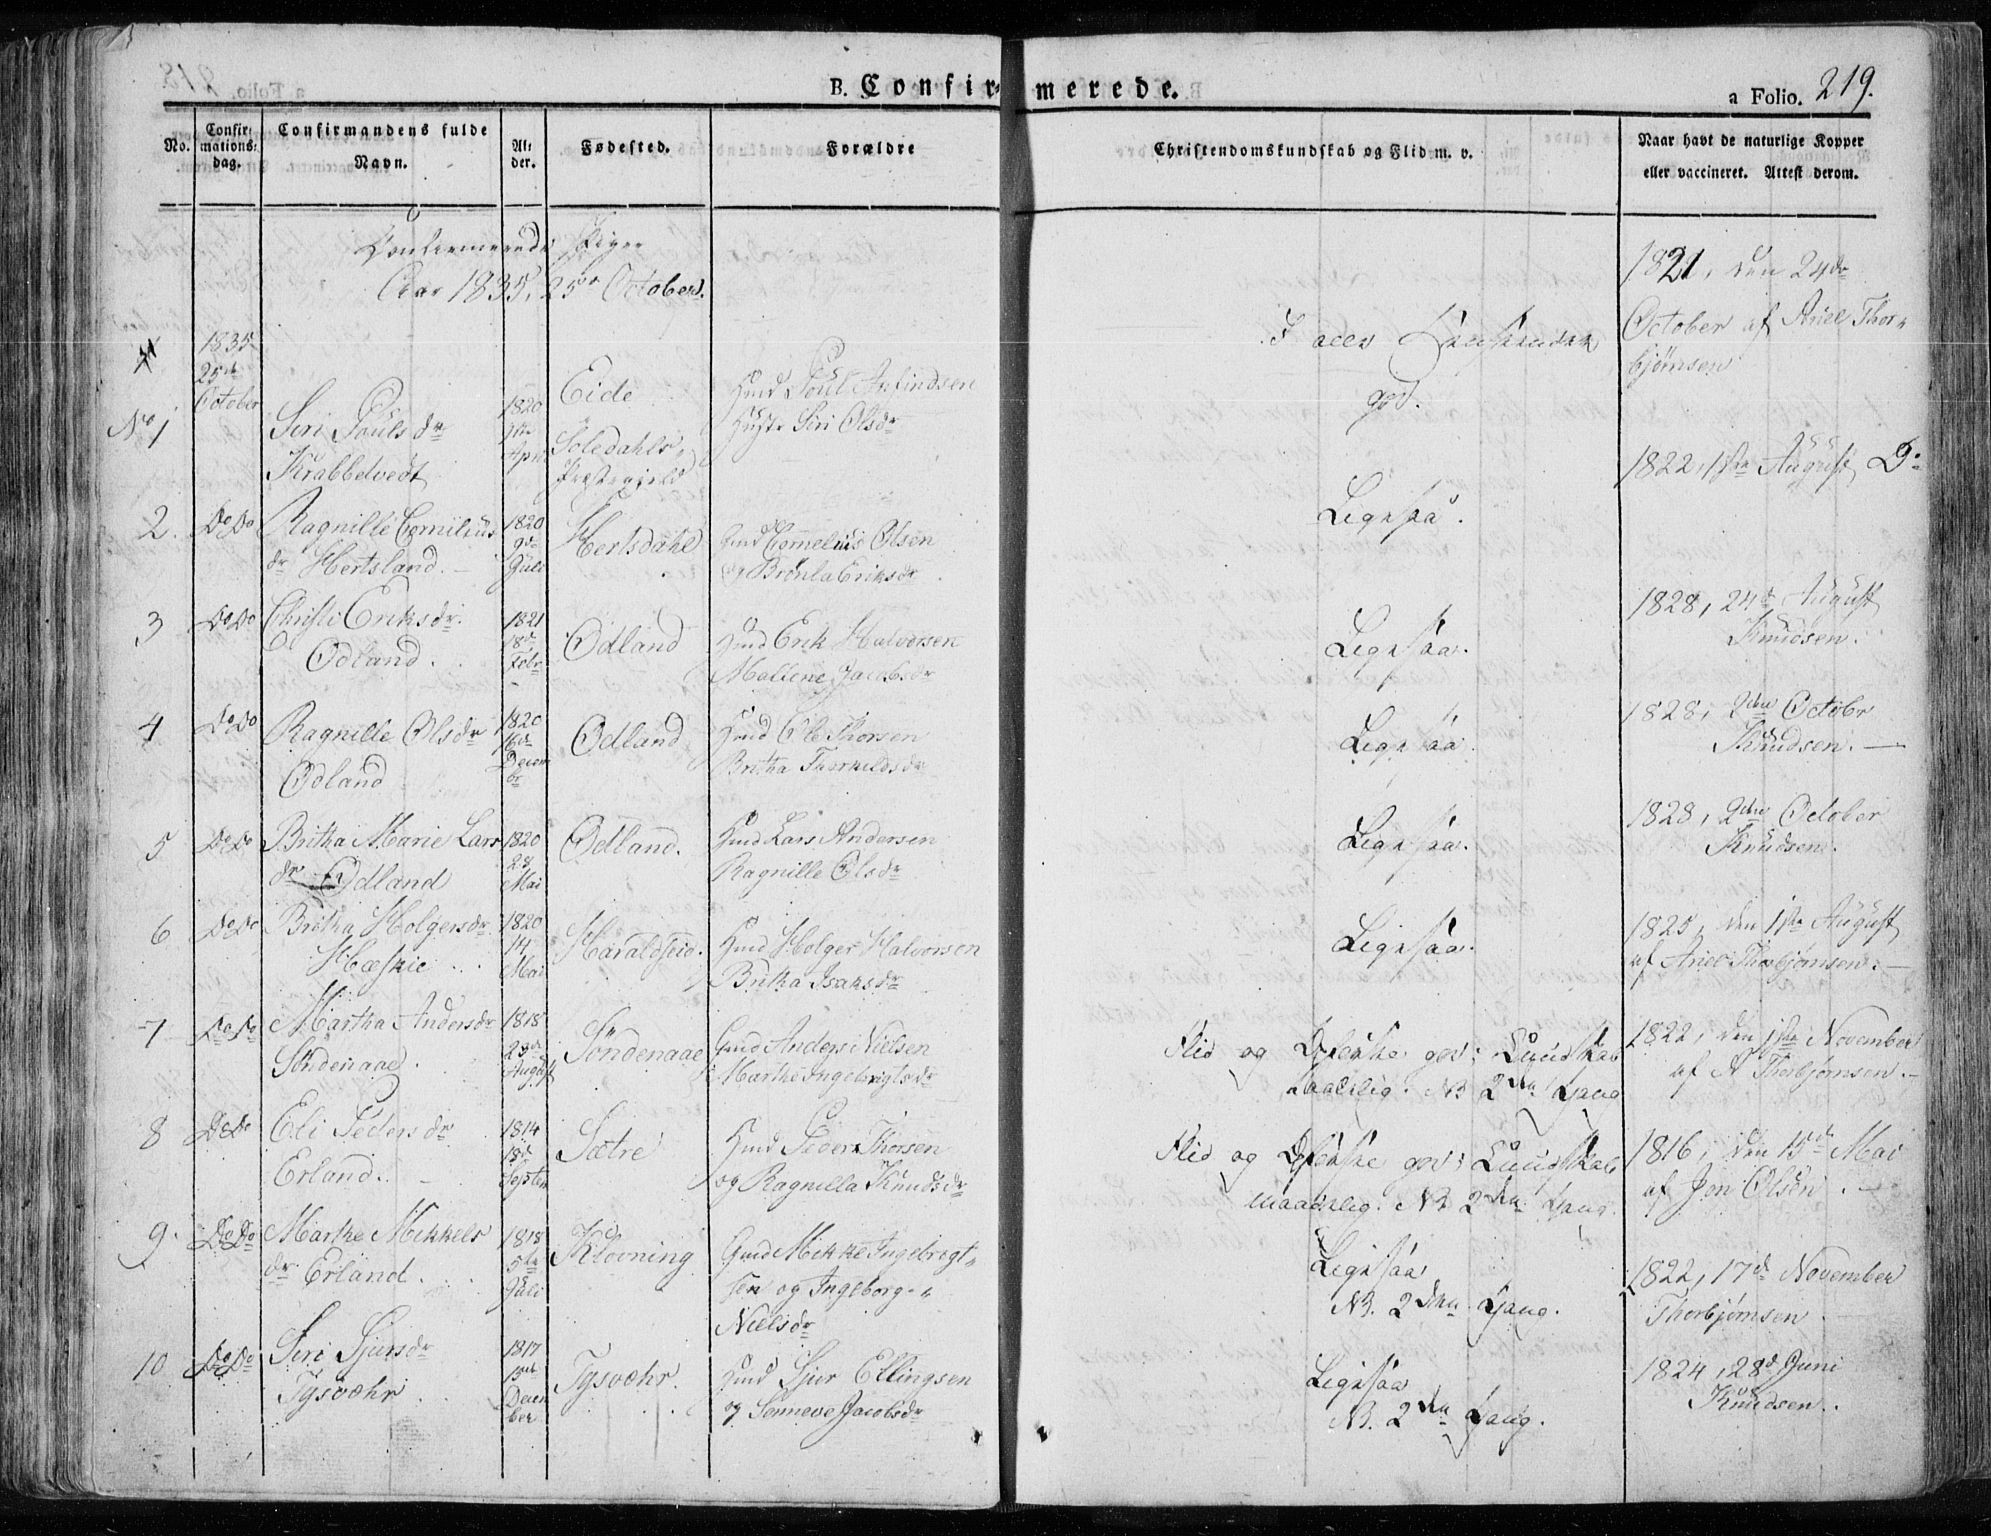 B. Confirmerede.
a Folio. 219.
No.
Confirmations-dag.
Confirmandens fulde Navn.
Alder.
Fødested.
Forældre
Christendomskundskab og Flid m. v.
Naar havt de naturlige Kopper eller vaccineret. Attest derom.
Confirmerede Piger
Aar 1835, 25de October.
No 1
1835 25de October
Siri Pouls dr Krabbetvedt
1820 Apr
Eide
Præstegield
Gmd Poul Anfindsen
Hustr Siri Olsdr
god.
1821, den 24de
October af Ariel Thor-
bjørnsen
2. Do Do
Ragnille Cornilius
dr Hertsland.
1820 9de Juli
Hertsdahl
Gmd Cornelius Olsen
og Brønla Eriksdr
Ligesaa.
1822, 1ste August Do
3 Do Do
Christi Eriksdr.
Odland.
1821 18de Febr
Odland
Gmd Erik Halvorsen
Mallene Jacobsdr
Ligesaa.
1828, 24de August
Knudsen.
4 Do Do
Ragnille Olsdr
Odland
1820 16de Decembr
Odland
Gmd Ole Thorsen
Britha Thorkildsdr
Ligesaa.
1828, 2den Octobr
Knudsen.
5 Do Do
Britha Marie Lars
dr Odland
1820 28 Mai
Odland.
Gmd Lars Andersen
Ragnille Olsdr
Ligesaa.
1828, 2den October
Knudsen.
6 Do Do
Britha Holgersdr
Hæskie
1820 14 Mai
Haraldseid.
Gmd Holger Halvorsen
Britha Isaksdr
Ligesaa.
1825, den 1ste August
af Ariel Thorbjørnsen.
7 Do Do
Martha Andersdr
Söndenaae.
1818 23de August
Söndenaae
Gmd Anders Nielsen
Marthe Ingebrigtsdr
Flid og god; Kundskab
maadelig. NB 2den Gang
1822, den 1ste November
af A Thorbjørnsen.
8 Do Do
Eli Peders dr
Erland.
1814 18de Septem
Sætre
Gmd Peder Thorsen
og Ragnilla Knudsdr
Flid og god; Kundskab
maadelig. NB 2den Gang.
1816, den 15de Mai
af Jon Olsen.
9. Do Do
Marthe Mikkels
dr Erland.
1818 5te Juli
Klovning
Gmd Mikkel Ingebrigt-
sen og Ingeborg
Nielsdr
Ligesaa
NB. 2den Gang.
1822, 17de November
Thorbjørnsen
10 Do Do
Siri Sjursdr
Tysvæhr
1817 December
Tysvæhr.
Gmd Sjur Ellingsen
og Sønneve Jacobsdr
Ligesaa
NB. 2den Gang.
1824, 28de Juni
Knudsen.